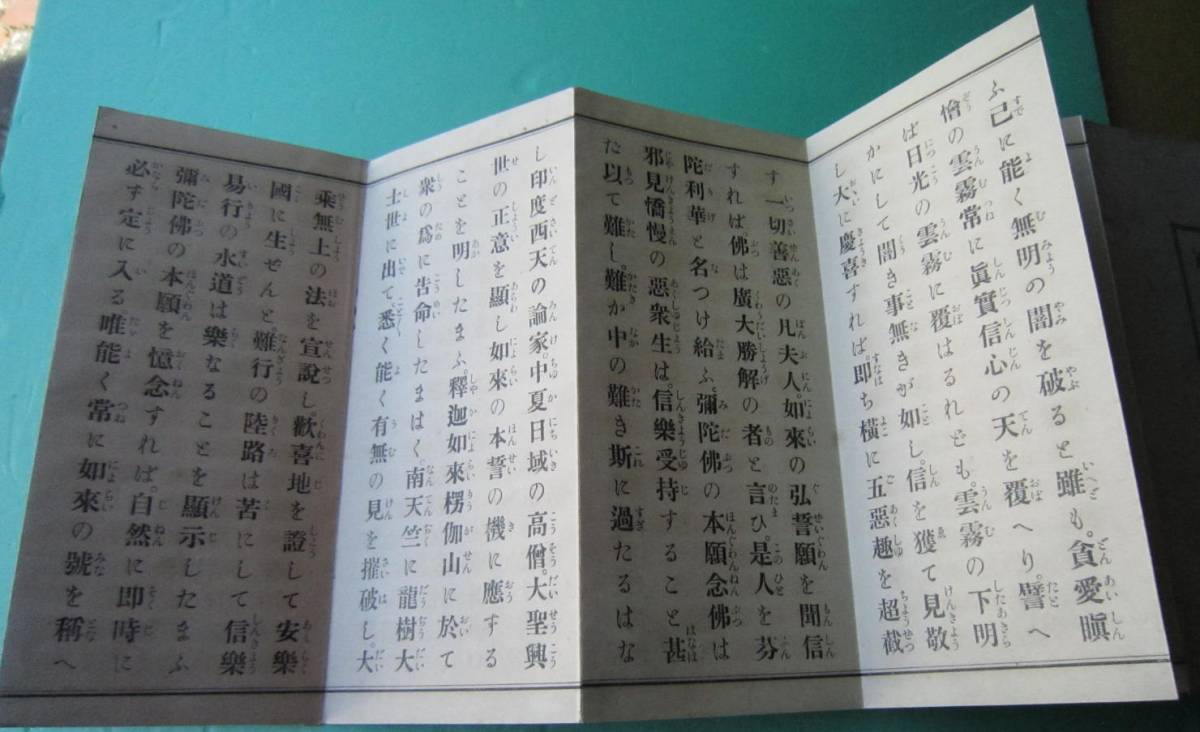 ふ已に能く無明の闇を破ると雖も。貪愛瞋
憎の雲霧常に眞實信心の天を覆へり。譬へ
ば日光の雲霧に覆はるれども。雲霧の下明
かにして闇き事無きが如し。信を獲て見敬
し大に慶喜すれば。即ち横に五惡趣を超截
す一切善惡の凡夫人。如來の弘誓願を聞信
すれば。佛は廣大勝解の者と言ひ。是人を芬
陀利華と名つけ給ふ。彌陀佛の本願念佛は
邪見憍慢の惡衆生は。信樂受持すること甚
た以て難し。難か中の難き斯に過たるはな
し印度西天の論家。中夏日域の高僧。大聖興
世の正意を顯し如來の本誓の機に應する
ことを明したまふ。釋迦如來楞伽山に於て
衆の爲に告命したまはく。南天竺に龍樹大
士世に出て悉く能く有無の見を摧破し。大
乘無上の法を宣說し。歡喜地を證して安樂
國に生ぜんと。難行の陸路は苦にして信樂
易行の水道は樂なることを顯示したまふ
彌陀佛の本願を憶念すれば。自然に即時に
必す定に入る唯能く常に如來の號を稱へ